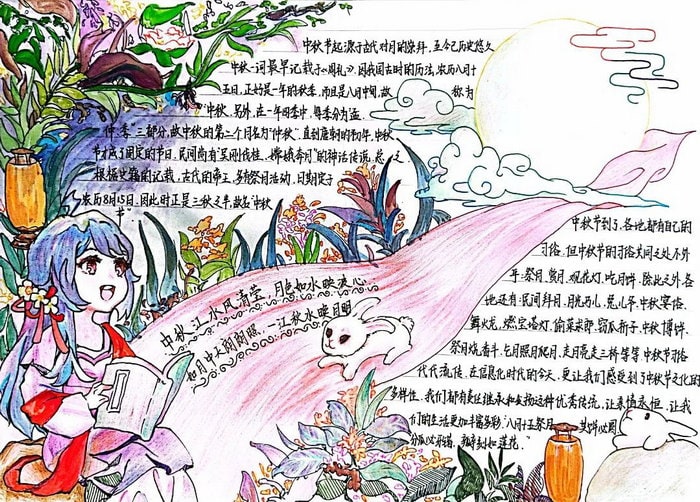 中秋节起源于古代对月的崇拜,至今已历史悠久
中秋一词最早记载于《周礼》。因我国古时的历法,农历八月十
五日,正好是一年的秋季,而且是八月中间,故 称为
中秋。另外,在一年四季中,每季分为孟
仲、季三部分,故中秋的第二个月名为“仲秋”,直到唐朝的初年,中秋
节才成了固定的节日,民间尚有“吴刚伐桂,嫦娥奔月”的神话传说,总之
根据史籍的记载,古代的帝王,多祭月活动,日期定于
农历8月15日,因此时正是三秋之半,故名“中秋
节”
中秋江水风清莹 月色如水映波心
和月中天朗朗照,一江秋水映月明
中秋节到了,各地都有自己的
习俗,但中秋节的习俗大同之处不外
乎:祭月、赏月、观花灯、吃月饼,除此之外各
地还有:民间拜月、月兔西儿、兔儿爷、中秋宴俗、
舞火龙、燃宝塔灯、偷菜求郎、窃瓜祈子、中秋博饼、
祭月烧斋斗、乞月照月爬月、走月亮走三桥等等中秋节习俗
代代流传,在信息化时代的今天,更让我们感受到了中秋节文化的
多样性,我们都有责任继承和发扬这种优秀传统,让亲情永恒,让我
们的生活更加丰富多彩,“八月十五祭月 其饼必圆
分瓜必牙错,瓣刻如莲花。”